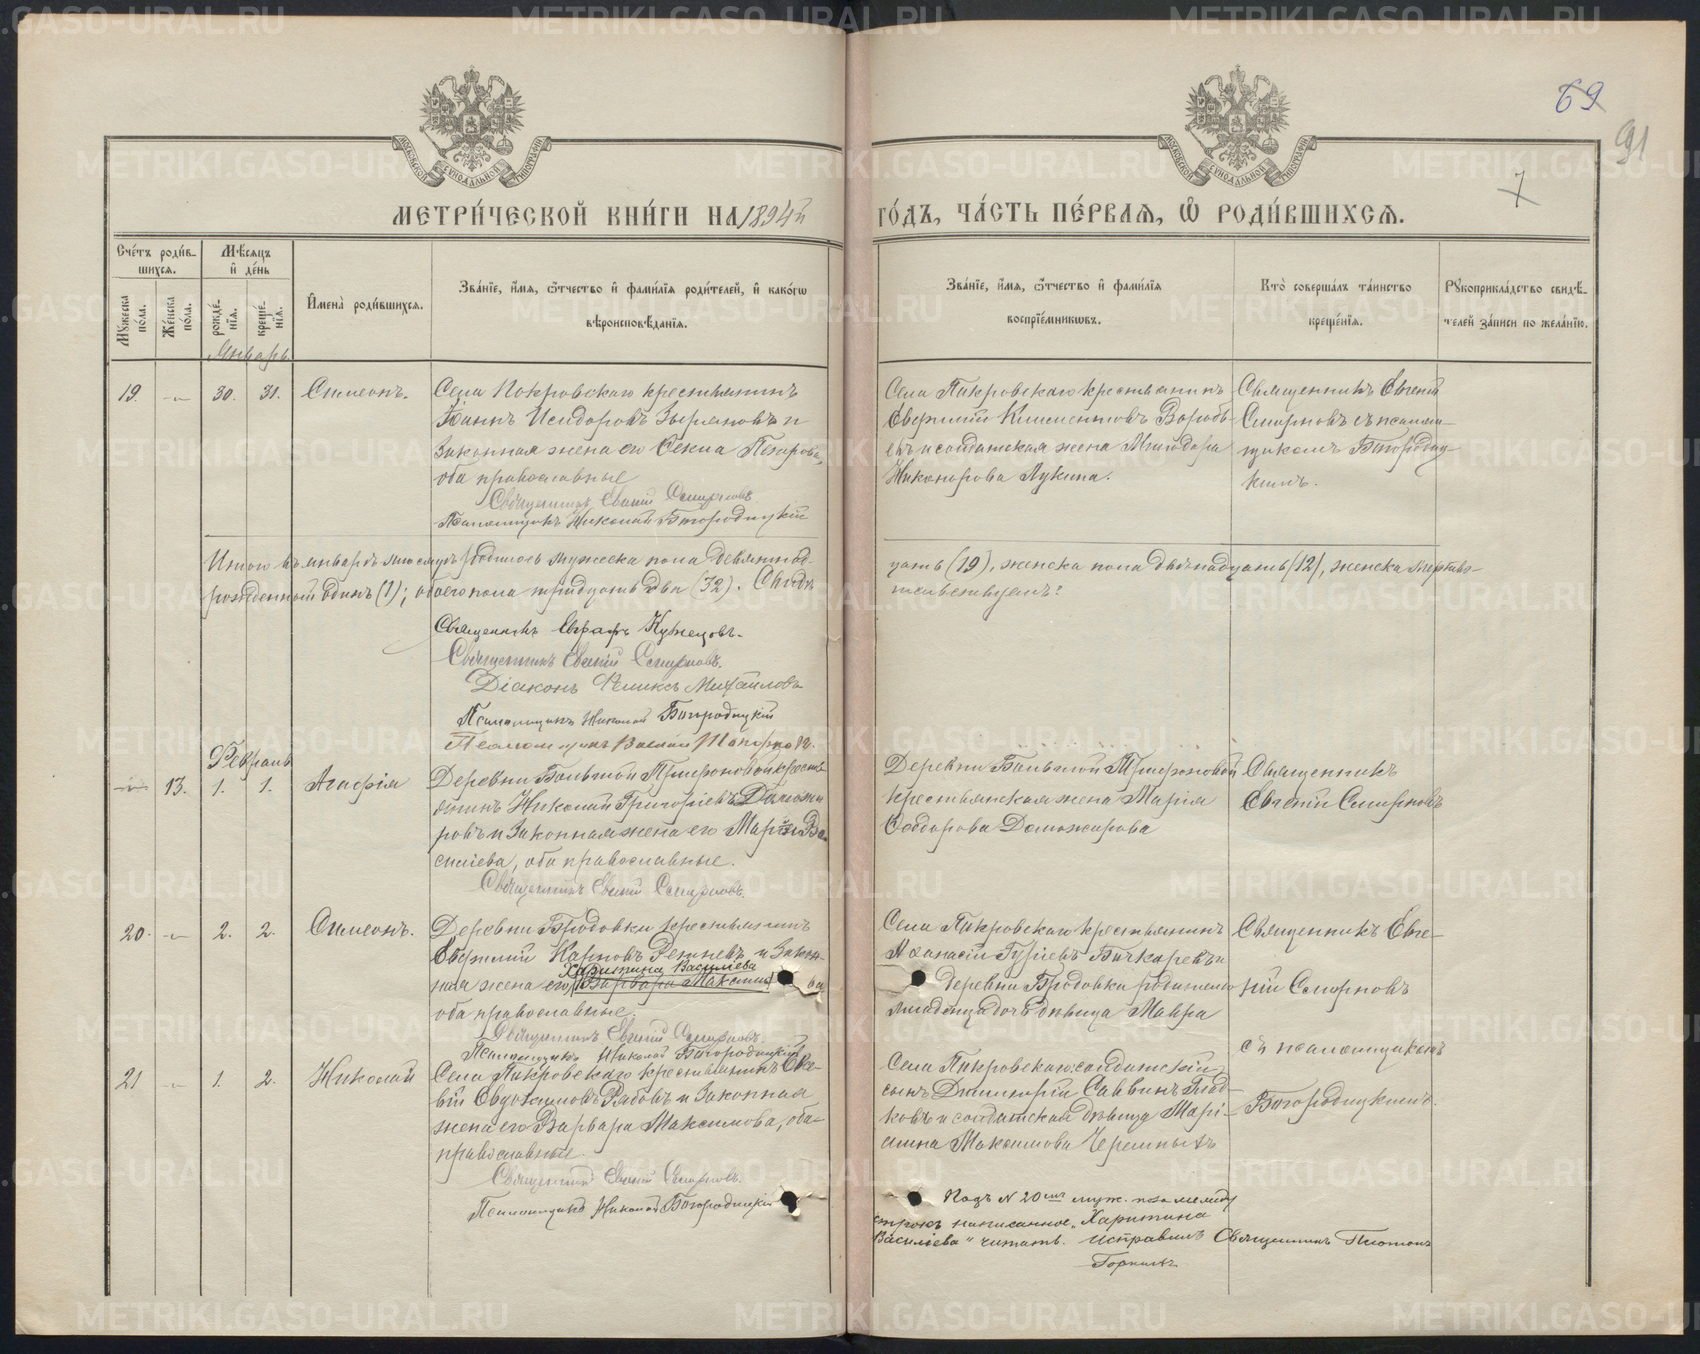 METRIKI.GASO-URAL.RU
69
91
7
МОСКОВСКОЙ СѴНОДАЛЬНОЙ ТИПОГРАФІИ
МОСКОВСКОЙ СѴНОДАЛЬНОЙ ТИПОГРАФІИ
МЕТРИ́ЧЕСКОЙ КНИ́ГИ НА 1894й
ГО́ДЪ, ЧА́СТЬ ПЕ́РВАѦ, Ѡ҆ РОДИ́ВШИХСѦ.
Сче́тъ роди́в-
шихсѧ.
Мѣ́сѧцъ
и҆ де́нь
Мꙋжеска по́ла.
Же́нска по́ла.
рожде́нїѧ.
креще́нїѧ.
И҆мена̀ роди́вшихсѧ.
Зва́нїе, и҆́мѧ, ѻ҆́тчество и҆ фами́лїѧ роди́телей, и҆ како́гѡ
вѣроисповѣ́данїѧ.
Зва́нїе, и҆́мѧ, ѻ҆́тчество и҆ фами́лїѧ
воспрїе́мникѡвъ.
Кто̀ соверша́лъ та́инство
креще́нїѧ.
Рꙋкоприкла́дство свидѣ́-
телей за́писи по жела́нїю.
Январь
19. 30. 31. Симеонъ.
Села Покровскаго крестьянинъ
Іоаннъ Исидоровъ Зыряновъ и
законная жена его Фекла
оба православные
Священникъ Евгеній Смирновъ.
Псаломщикъ Николай Богородицкій
Села Покровскаго крестьянинъ
Евфимій Климентовъ Воробь-
евъ и солдатская жена
Никонорова Лукина.
Священникъ Евгеній
Смирновъ съ псалом-
щикомъ Богородиц-
кимъ.
Итого въ январѣ мѣсяцѣ родилось мужеска пола девятнад-
цать (19), женска пола двѣнадцать (12), женска мертво-
рожденной одинъ (1); обоего пола тридцать два (32). Свидѣ-
тельствуемъ:
Священникъ Кузнецовъ.
Священникъ Евгеній Смирновъ.
Діаконъ Феликсъ Михайловъ
Псаломщикъ Николай Богородицкій
Псаломщикъ Василій Топорковъ.
Февраль
13. 1. 1. Агафія
Деревни Большой Трифоновой кресть-
янинъ Николай Григоріевъ Доможи
ровъ и законная жена его Марія Ва
сильева, оба православные.
Священникъ Евгеній Смирновъ.
Деревни Большой Трифоновой
крестьянская жена Марія
Доможирова
Священникъ
Евгеній Смирновъ
20. 2. 2. Симеонъ.
Деревни Бродовки крестьянинъ
Евфимій Карповъ Репневъ и закон-
Харитина Василіева
ная жена его Варвара Максимова
оба православные.
Священникъ Евгеній Смирновъ.
Псаломщикъ Николай Богородицкій
Села Покровскаго крестьянинъ
Аѳанасій Гуріевъ Бичкаревъ и
деревни Бродовки
младенца дочь дѣвица Мавра
Священникъ Евге-
ній Смирновъ
съ псаломщикомъ
Богородицкимъ.
21 1. 2. Николай
Села Покровскаго крестьянинъ
Евдокимовъ Рябовъ и законная
жена его Варвара Максимова, оба
православные.
Священникъ Евгеній Смирновъ.
Псаломщикъ Николай Богородицкій
Села Покровскаго солдатскій
сынъ Димитрій Саввинъ Глад-
ковъ и солдатская дѣвица Марі-
амна Максимова Черемныхъ
Подъ № 20 муж. пола между
строкъ написанное „Харитина
Василіева“ читать. Исправилъ Священникъ Платонъ
Горныхъ